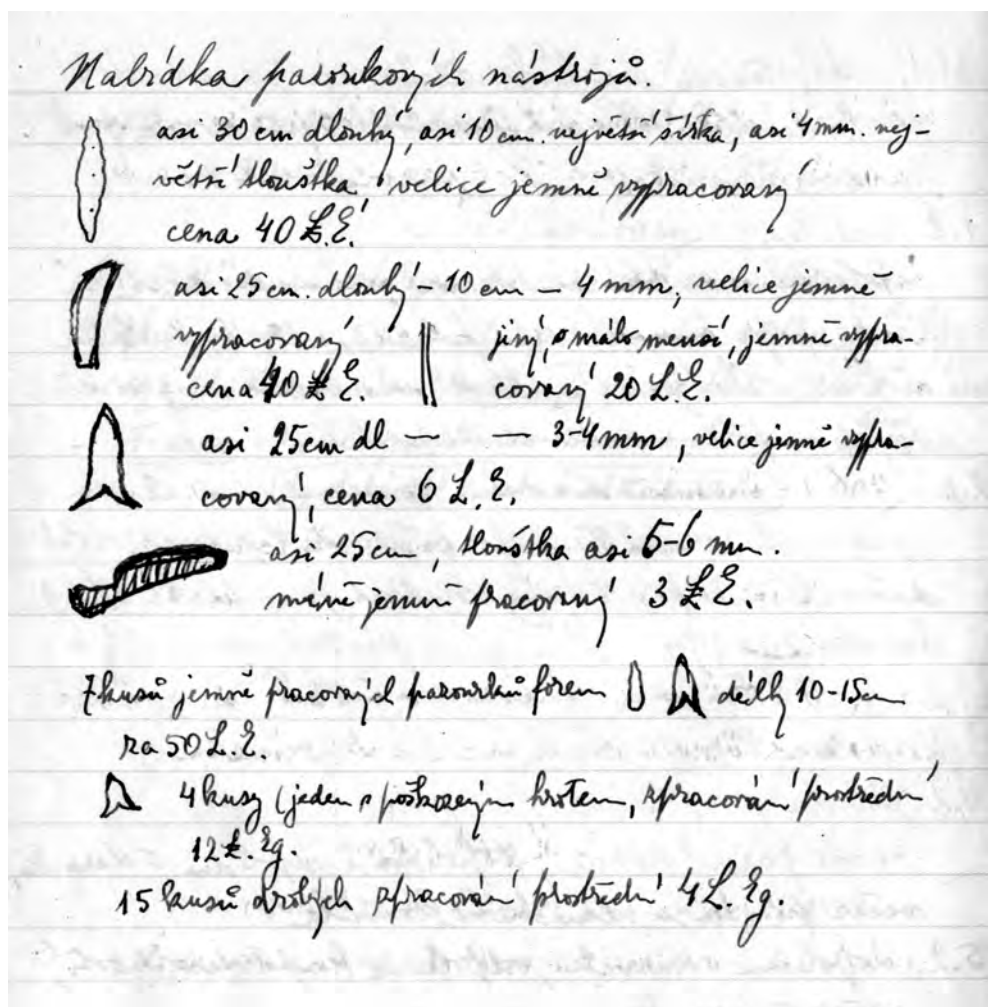 Nabídka pazourkových nástrojů.
asi 30 cm dlouhý, asi 10 cm. největší šířka, asi 4 mm. nej-
větší tloušťka, velice jemně vypracovaný
cena 40 L.E.
asi 25 cm. dlouhý – 10 cm – 4 mm, velice jemně
vypracovaný
cena 40 L.E.
jiný, o málo menší, jemně vypra-
covaný 20 L.E.
asi 25 cm dl — — 3-4 mm, velice jemně vypra-
covaný, cena 6 L.E.
asi 25 cm, tloušťka asi 5-6 mm.
méně jemně pracovaný 3 L.E.
7 kusů jemně pracovaných pazourků forem délky 10-15 cm
za 50 L.E.
4 kusy (jeden s poškozeným hrotem, zpracování prostřední
12 L. Eg.
15 kusů drobných zpracování prostřední 4 L. Eg.